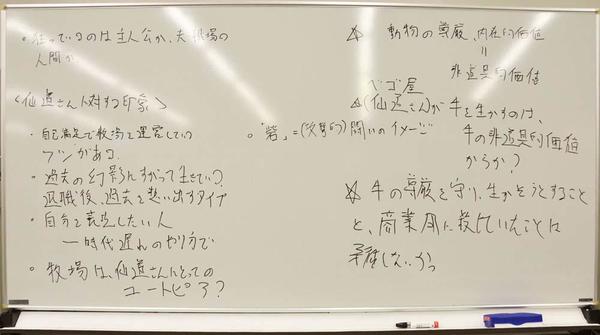 ・狂っているのは主人公か、夫、牧場の
人間か
〈仙道さんに対する印象〉
・自己満足で牧場を運営している
フシがある。
・過去の幻影にすがって生きている?
退職後、過去を想い出すタイプ
・自分を表現したい人
一時代遅れのやり方で
・牧場は、仙道さんにとっての
ユートピア?
☆ 動物の尊厳、内在的価値
=
非道具的価値
ベゴ屋
☆(仙道さん)が牛を生かすのは、
牛の非道具的価値
からか?
。「砦」=(次男的)闘いのイメージ
☆ 牛の尊厳を守り、生かそうとすること
と、商業用に殺していたことは
矛盾しないか。